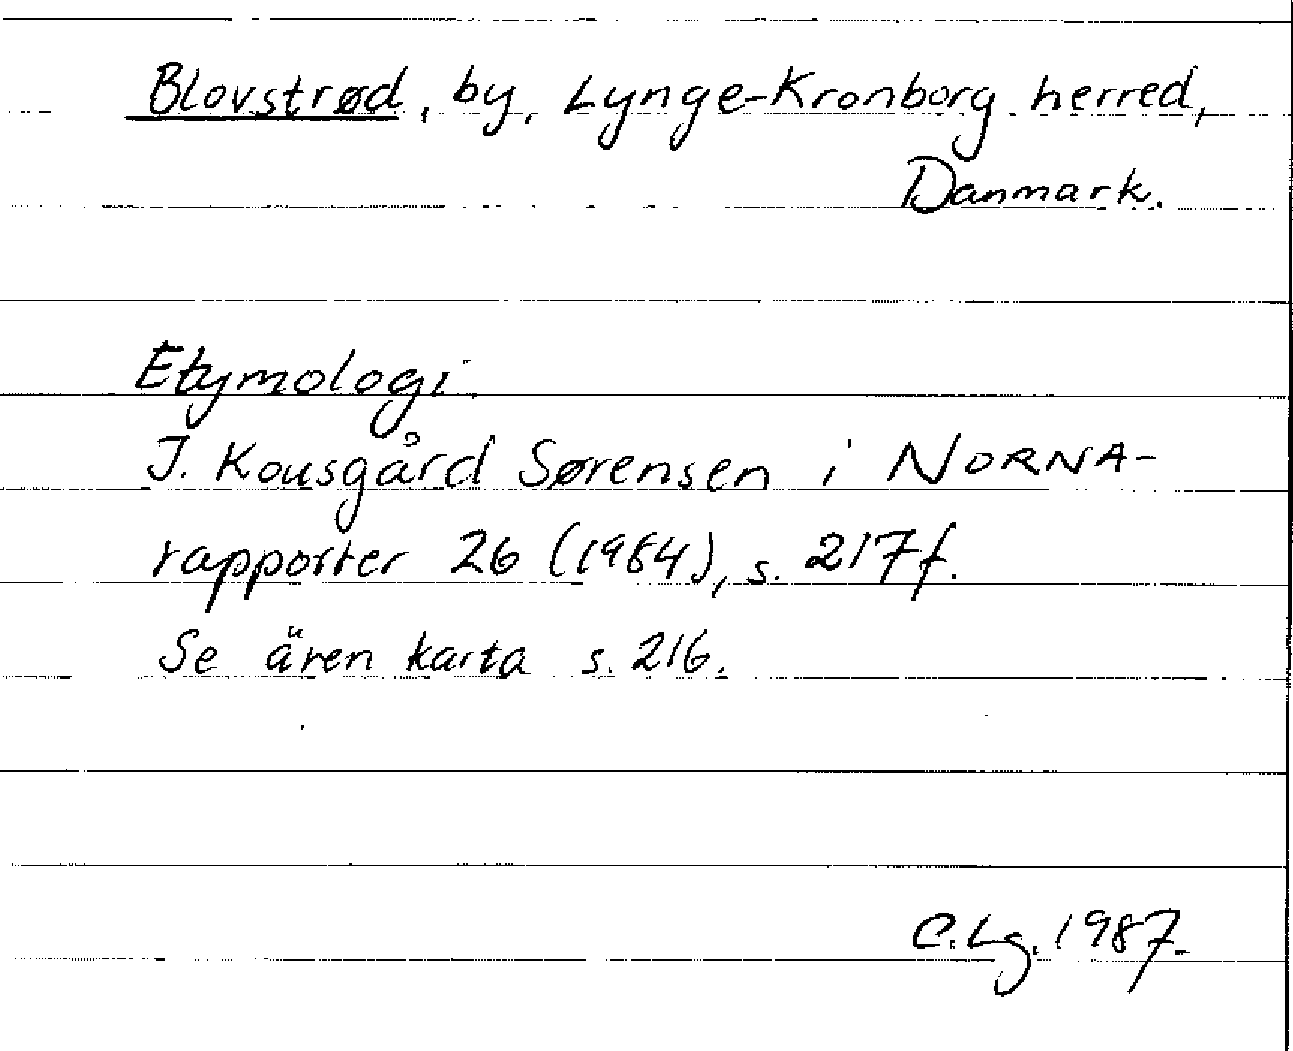 Blovstrød, by, Lynge-Kronborg herred,
Danmark.
Etymologi
J. Kousgård Sørensen i NORNA-
rapporter 26 (1984), s. 217f.
Se även karta s. 216.
C.Lg. 1987.